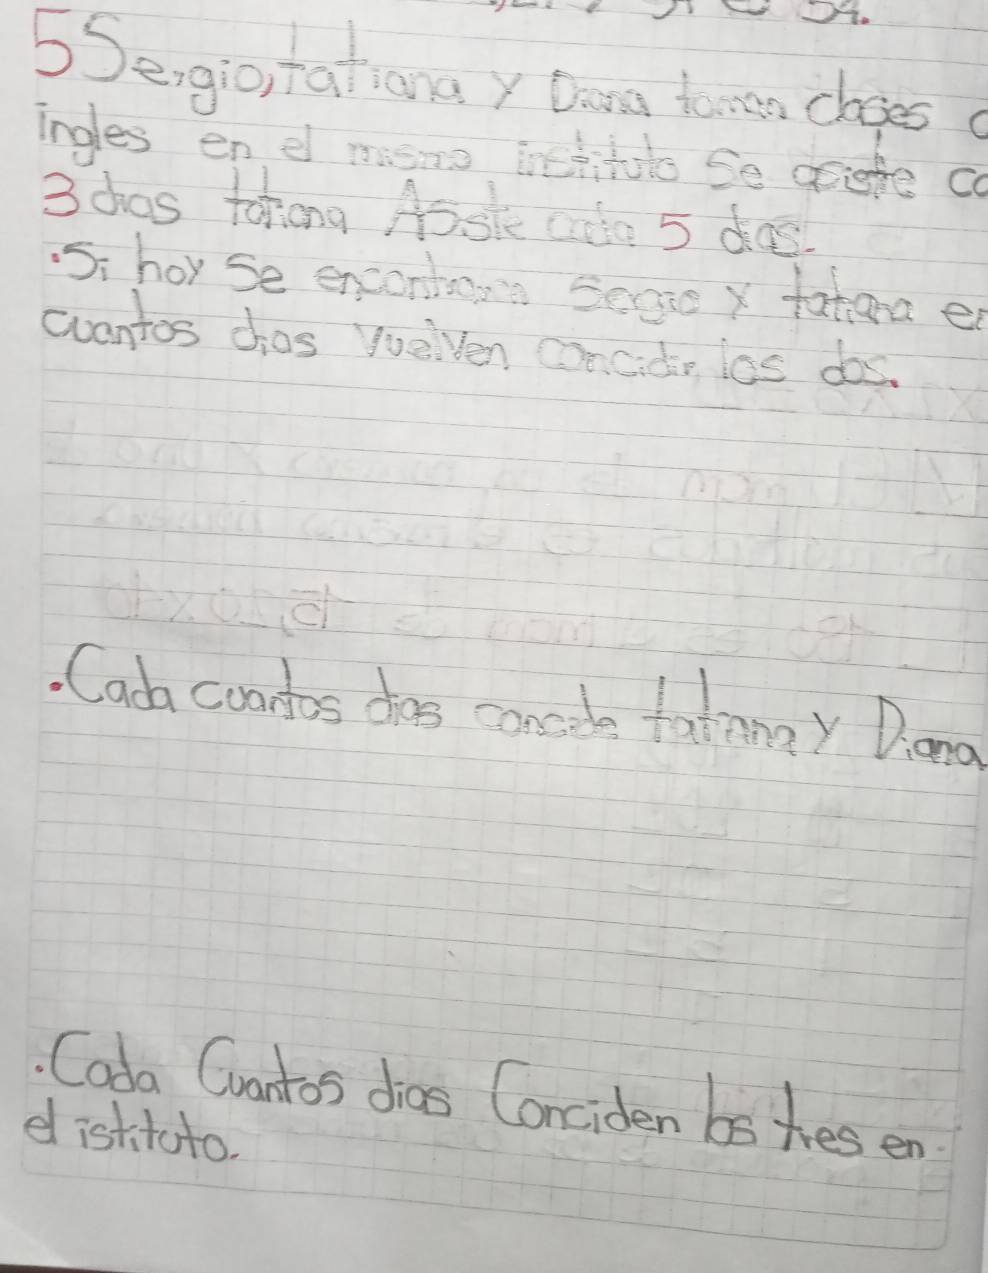 54.
5 Sergio, tatiana y Diana toman clases d
ingles en el mismo instituto Se asiste ca
3 dias tatiana Asste cada 5 dias.
. Si hoy Se encontraron Segio y tatiana en
cuantos dias vuelven concidir los dos.
. Cada cuantos dias concide tatiana y Diana
. Cada Cuantos dias Conciden los tres en
el istituto.